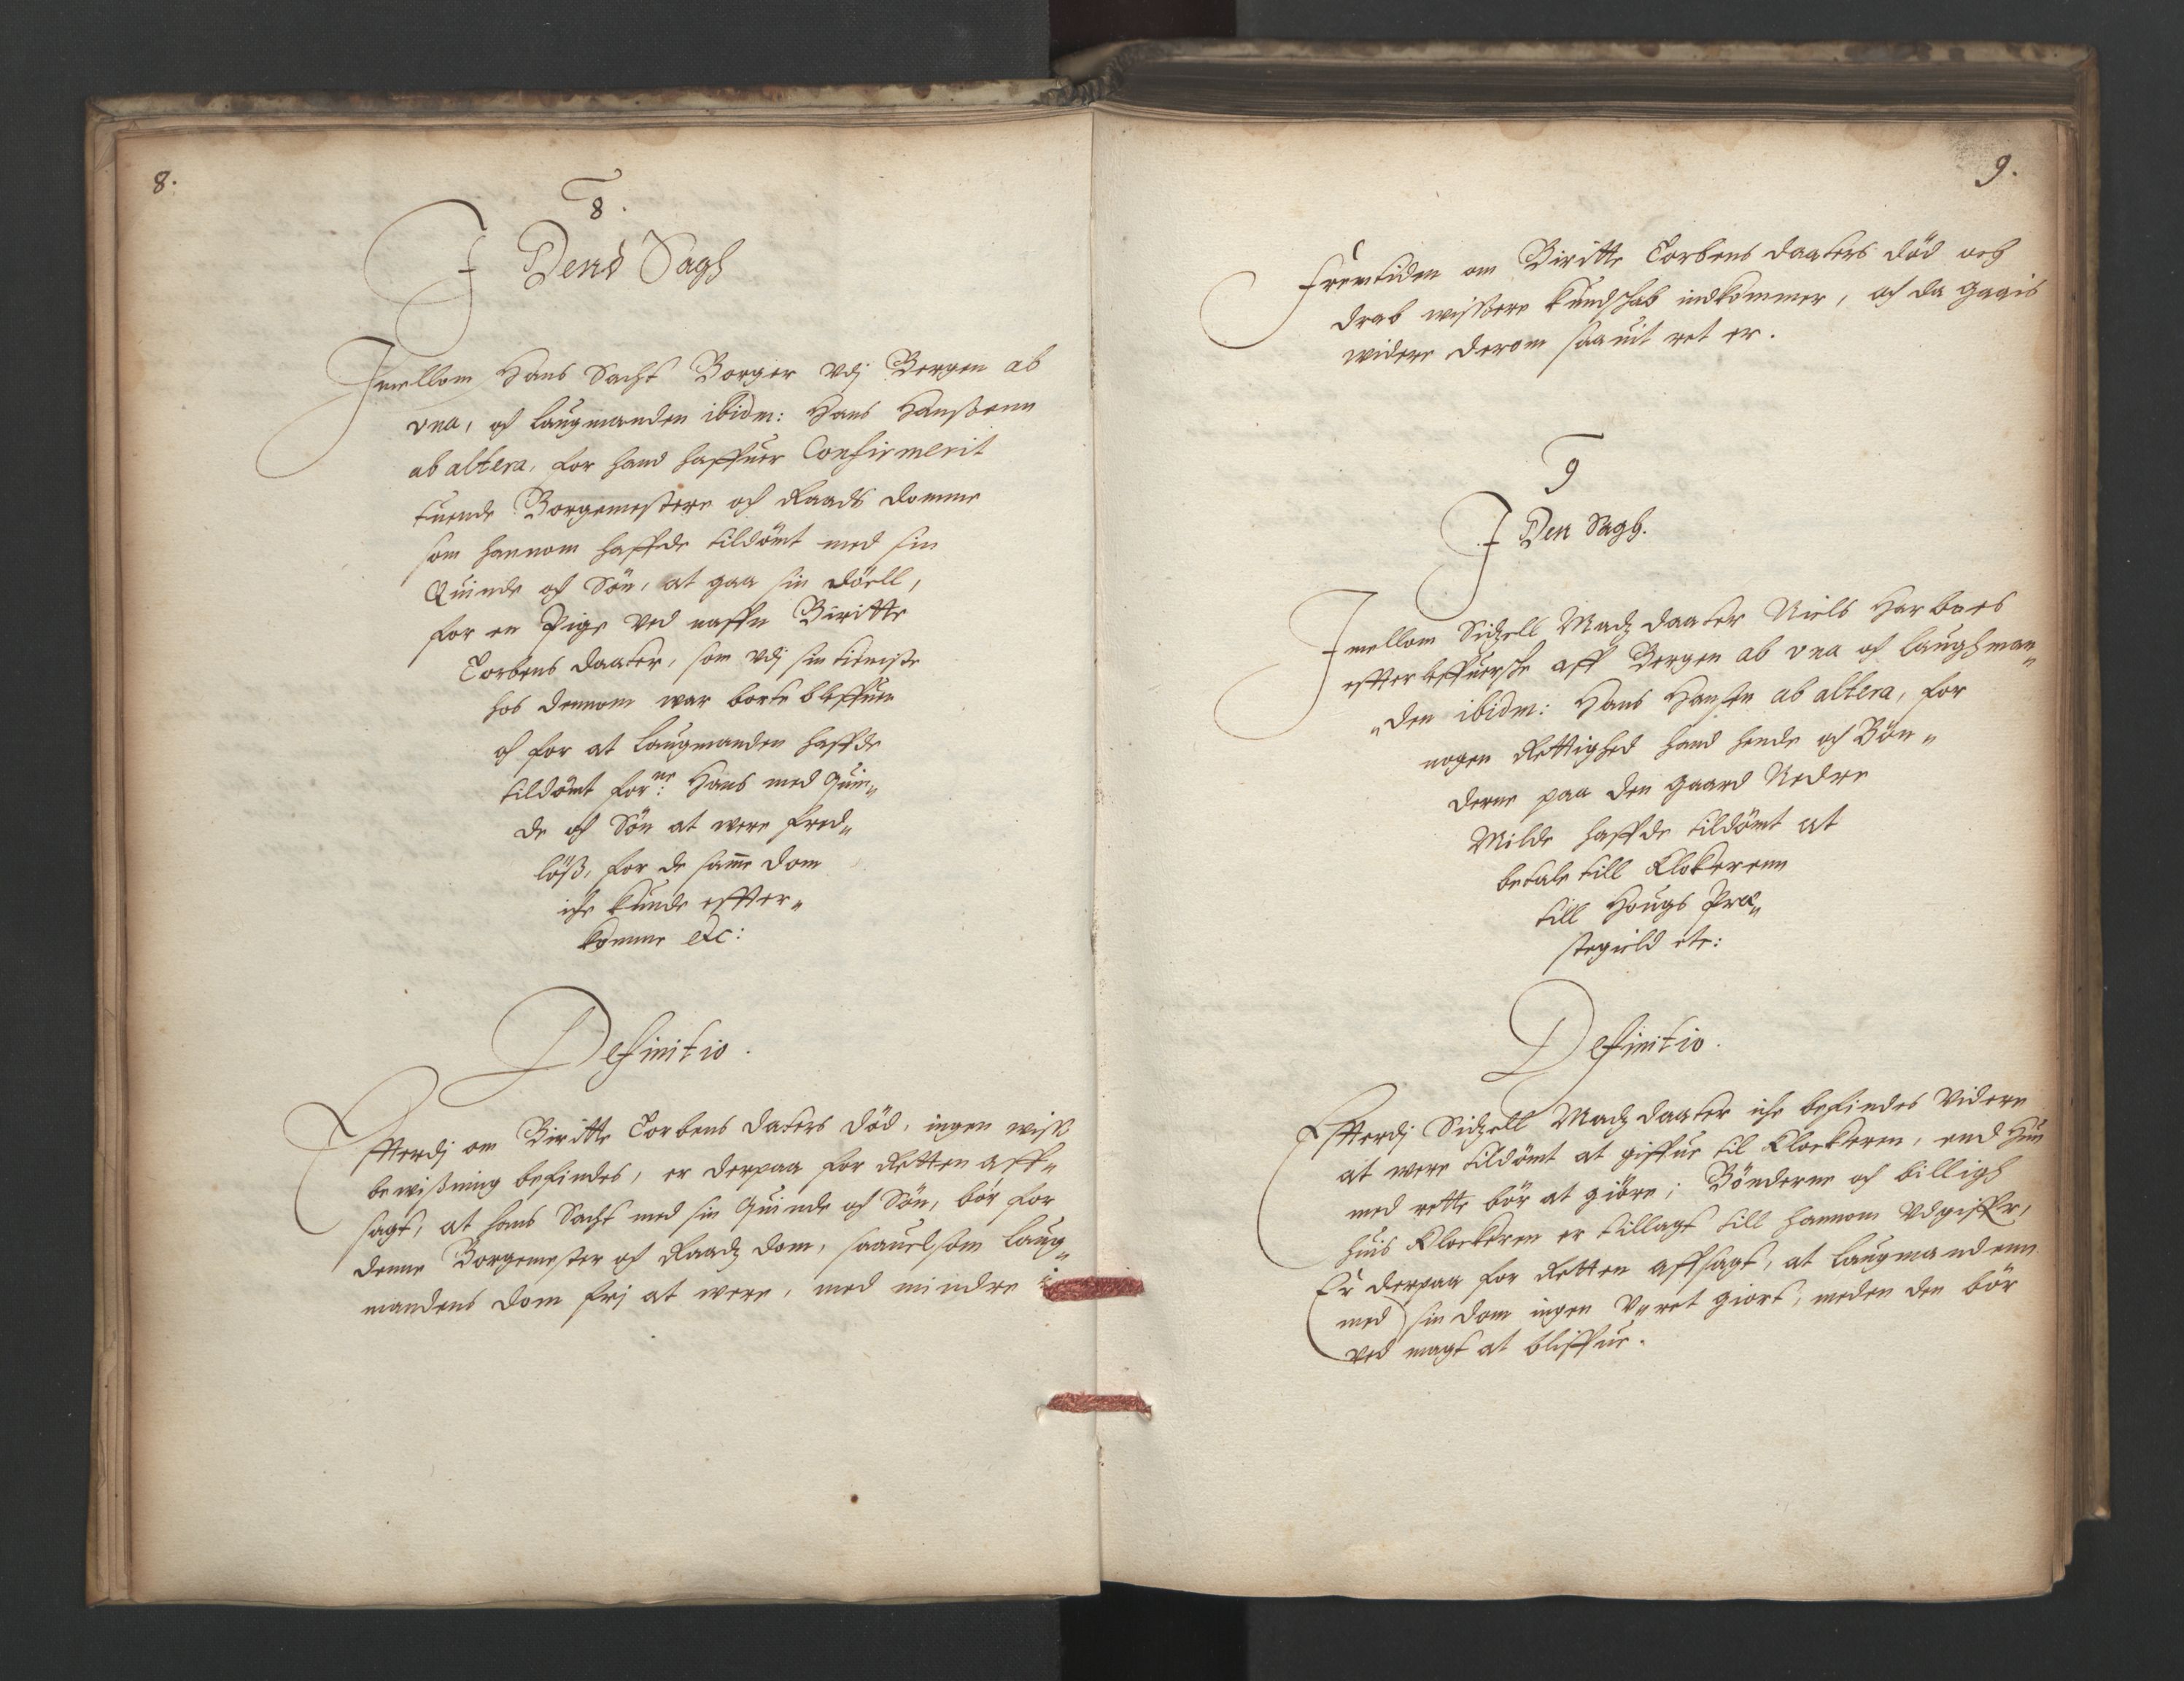 8.
8.
I Dend Sagh
Imellom Hans Sachs Borger vdj Bergen ab
vna, och laugmanden ibidem: Hans Hanßenn
ab altera, for hand haffuer Confirmerit
tuende Borgemestere och Raads domme
som hannom haffde tildömt med sin
Quinde och Sön, at gaa sin döell,
for en Pige ved naffn Biritte
Torbens daater, som vdj sin tieniste
hos dennom war borte bleffuen
och for at laugmanden haffde
tildömt forne: Hans med Quin„
de och Sön at were fred„
löß, for de samme dom
iche kunde effter„
komme etc:
Definitio.
Efftterdj om Biritte Torbens daters död, ingen wiß
bewißning befindes, er derpaa for Retten aff„
sagt, at hans Sachs med sin Quinde och Sön, bör for
denne Borgemester och Raadz dom, saauelsom laug„
mandens dom frj at were, med mindre i
9.
fremtiden om Biritte Torbens daaters död och
drab wissere kundschab indkommer, och da gaais
widere derom saauit ret er.
9
I Den Sagh.
Imellom Sidzell Madz daater Niels Harboes
effterleffuersche aff Bergen ab vna och laughman„
„den ibidem: Hans Hansen ab altera, for
nogen Rettighed hand hende och Bön„
derne paa den gaard Nedre
Milde haffde tildömt at
betale till Klokerenn
till Hougs Præ„
stegield etc:
Definitio.
Effterdj Sidzell Madz daater iche befindes videre
at were tildömt at giffue til Klockeren, end hun
med rette bör at giöre; Bönderne och billigh
huis Klockeren er tillagt till hannom vdgiffer,
Er derpaa for Retten affsagt, at laugmandenn
med sin dom ingen V„ret giort, meden den bör
ved magt at bliffue.